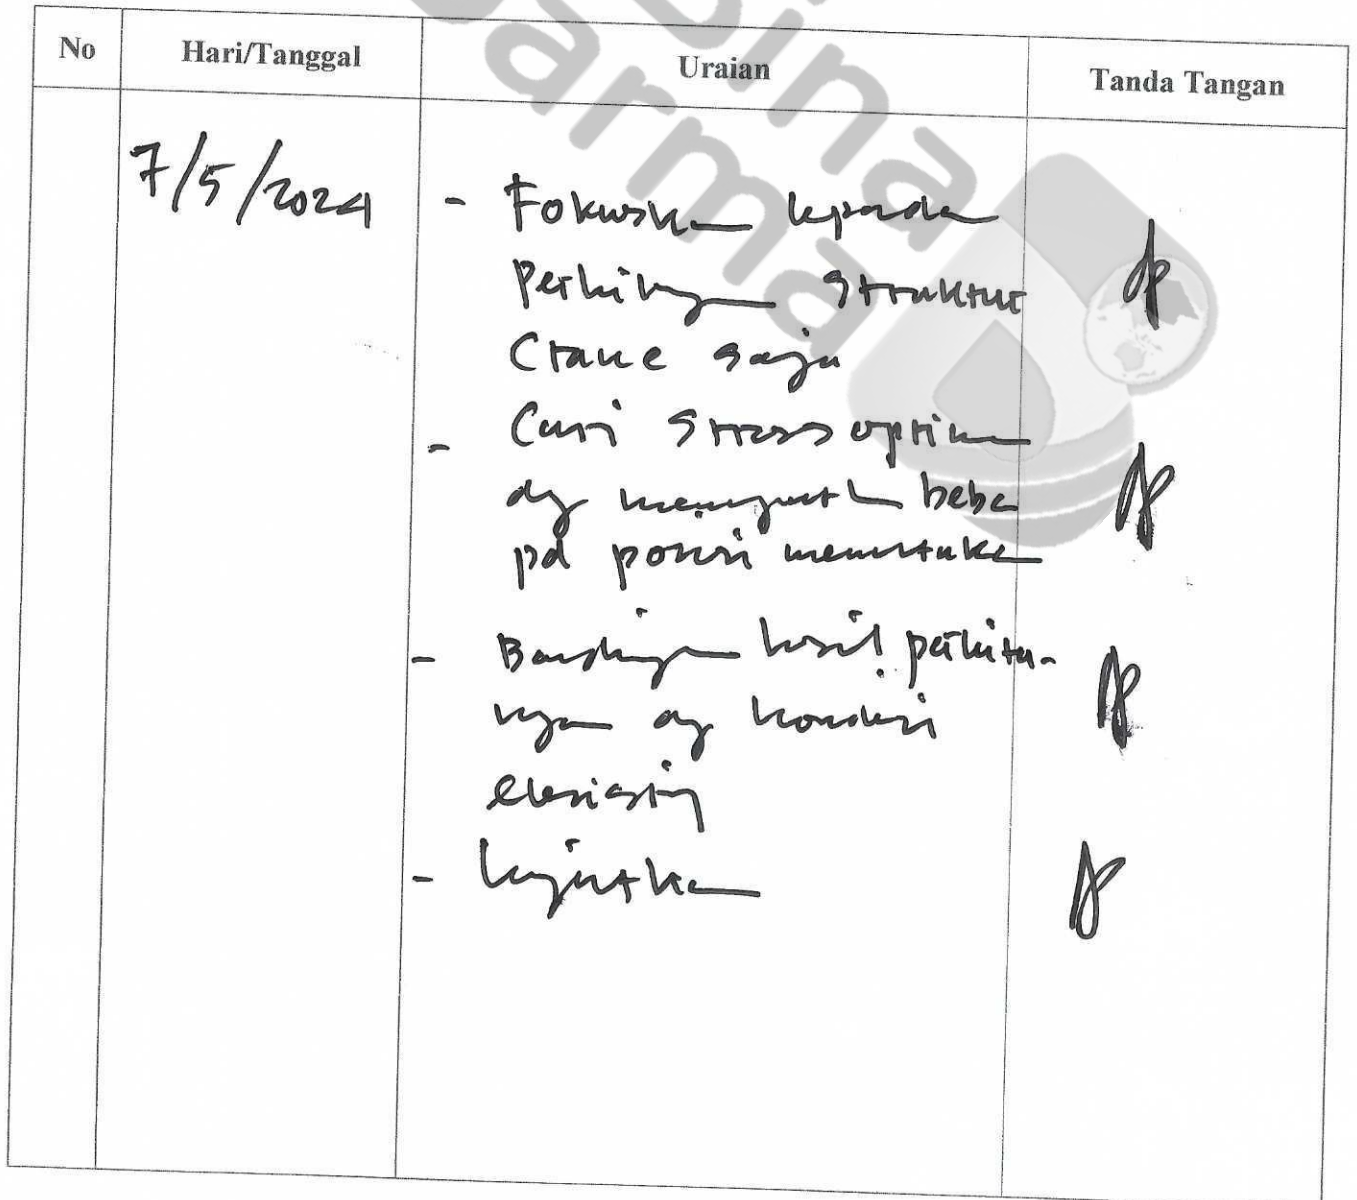 bina
darma
No Hari/Tanggal Uraian Tanda Tangan
7/5/2024
- Fokuskan kepada
Perhitungan Struktur
Crane saja
- Cari Stress optimum
dg menguatkan beban
pd posisi menentukan
- Bandingkan hasil perhitu-
ngan dg kondisi
eksisting
- Lanjutkan